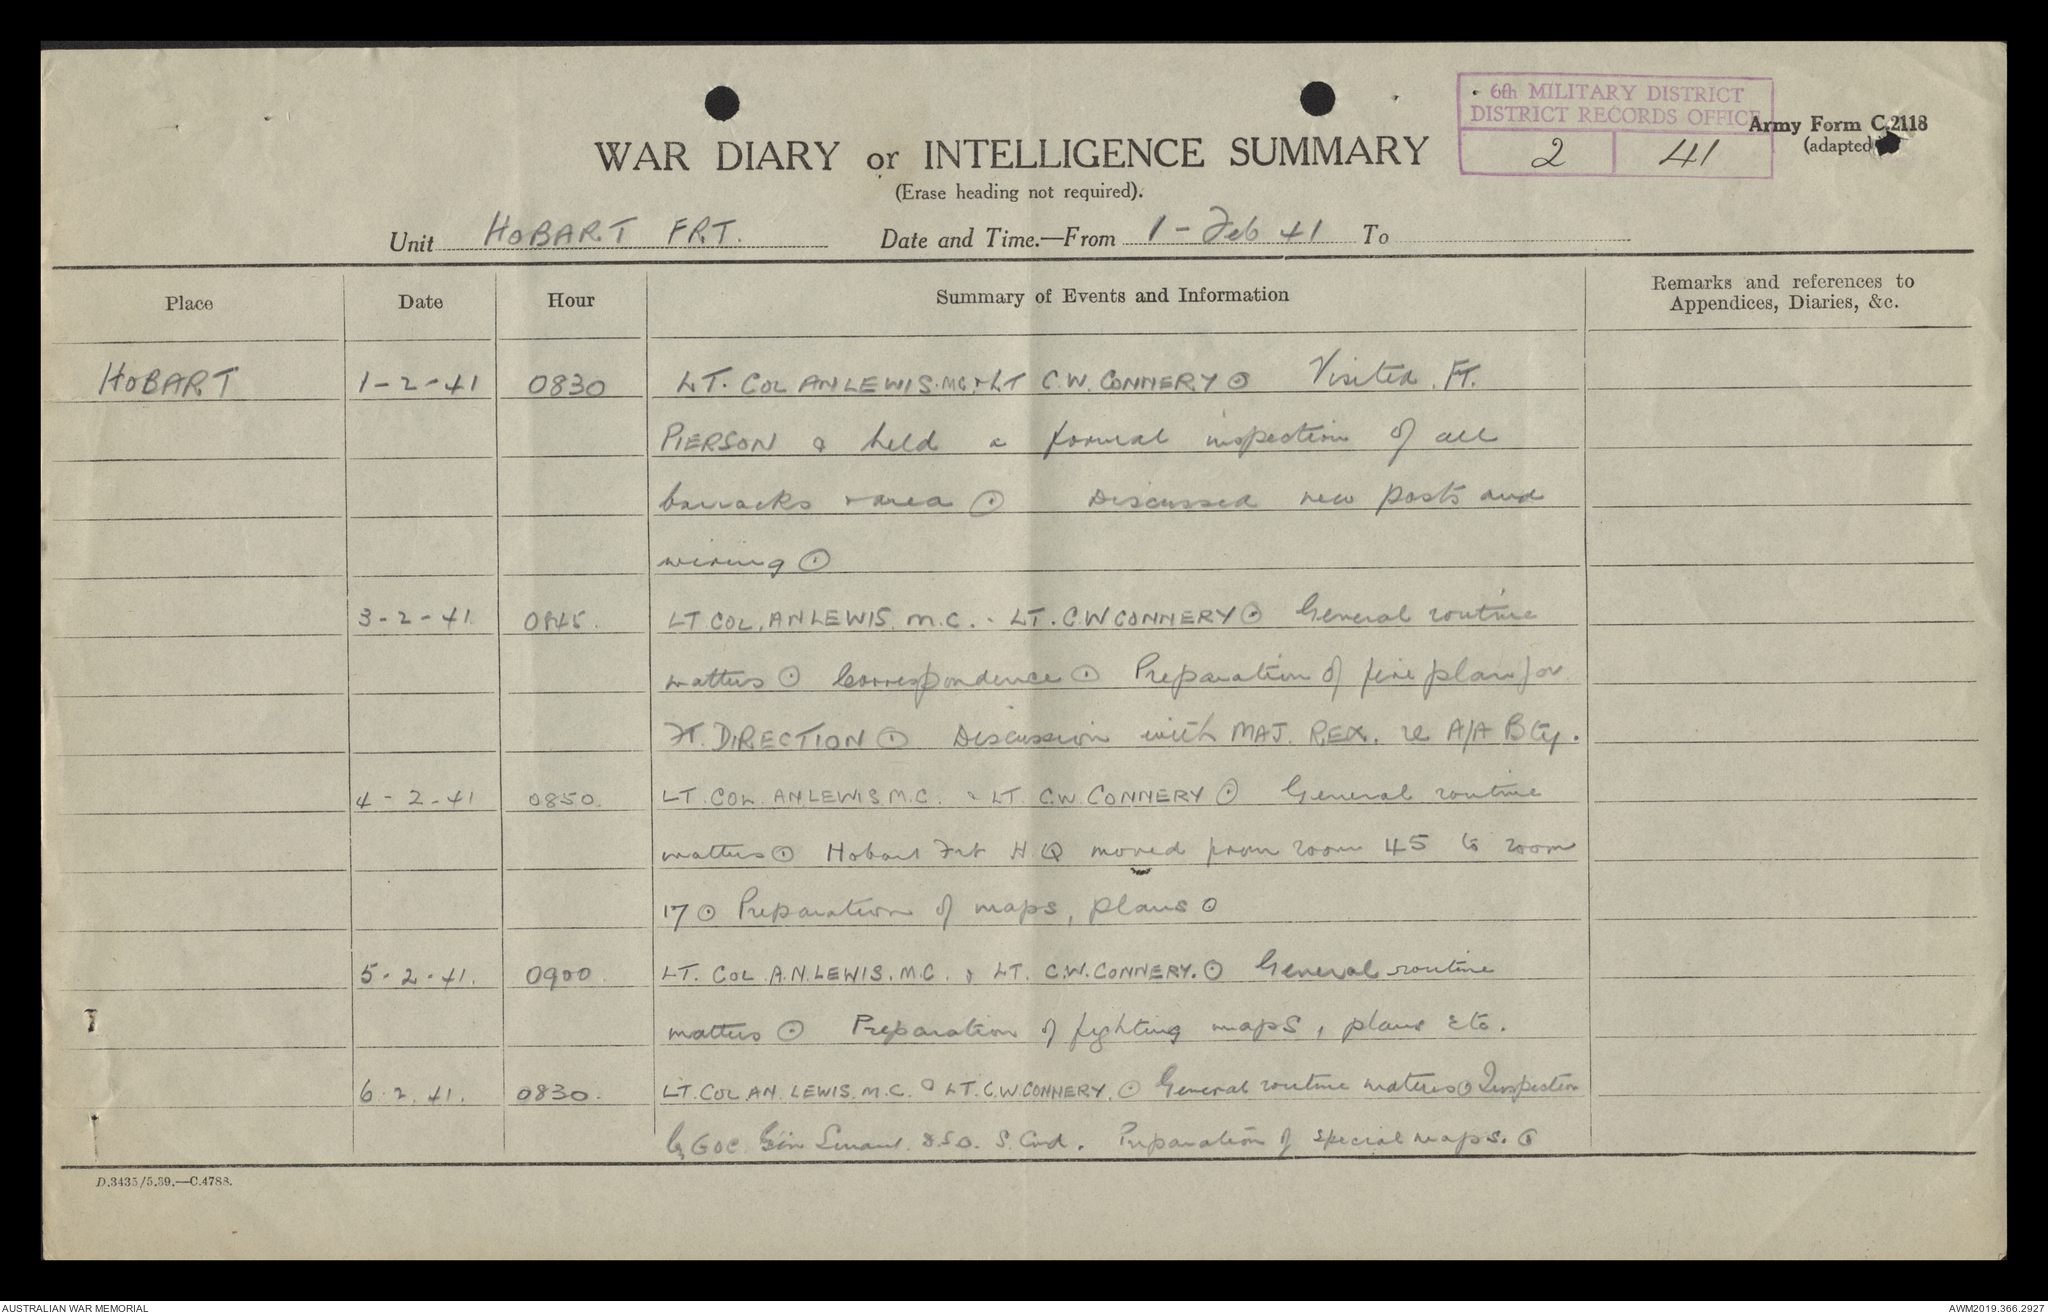 6th MILITARY DISTRICT
DISTRICT RECORDS OFFICE
2 41
Army Form C.2118
(adapted)
WAR DIARY or INTELLIGENCE SUMMARY
(Erase heading not required).
Unit HOBART FRT. Date and Time.—From 1 - Feb 41 To
Place Date Hour Summary of Events and Information Remarks and references to
Appendices, Diaries, &c.
HOBART 1-2-41 0830 LT. COL AN LEWIS. MC. & LT C.W. CONNERY ⊙ Visited FT.
PIERSON & held a formal inspection of all
barracks & area ⊙ Discussed new posts and
wiring ⊙
3-2-41 0845. LT COL. AN LEWIS. M.C. & LT. C.W CONNERY ⊙ General routine
matters ⊙ Correspondence ⊙ Preparation of fire plan for
FT. DIRECTION ⊙ Discussion with MAJ. REX. re A/A Bty.
4-2-41 0850. LT. COL. AN LEWIS M.C. & LT. C.W. CONNERY ⊙ General routine
matters ⊙ Hobart Frt H.Q moved from room 45 to room
17 ⊙ Preparation of maps, plans ⊙
5-2-41. 0900. LT. COL A.N. LEWIS. M.C. & LT. C.W. CONNERY. ⊙ General routine
matters ⊙ Preparation of fighting maps, plans etc.
6.2.41. 0830. LT. COL AN. LEWIS. M.C. & LT. C.W CONNERY. ⊙ General routine matters ⊙ Inspection
by GOC. S. Cmd. Preparation of special maps. ⊙
D.3435/5.39.—C.4788.
AUSTRALIAN WAR MEMORIAL AWM2019.366.2927